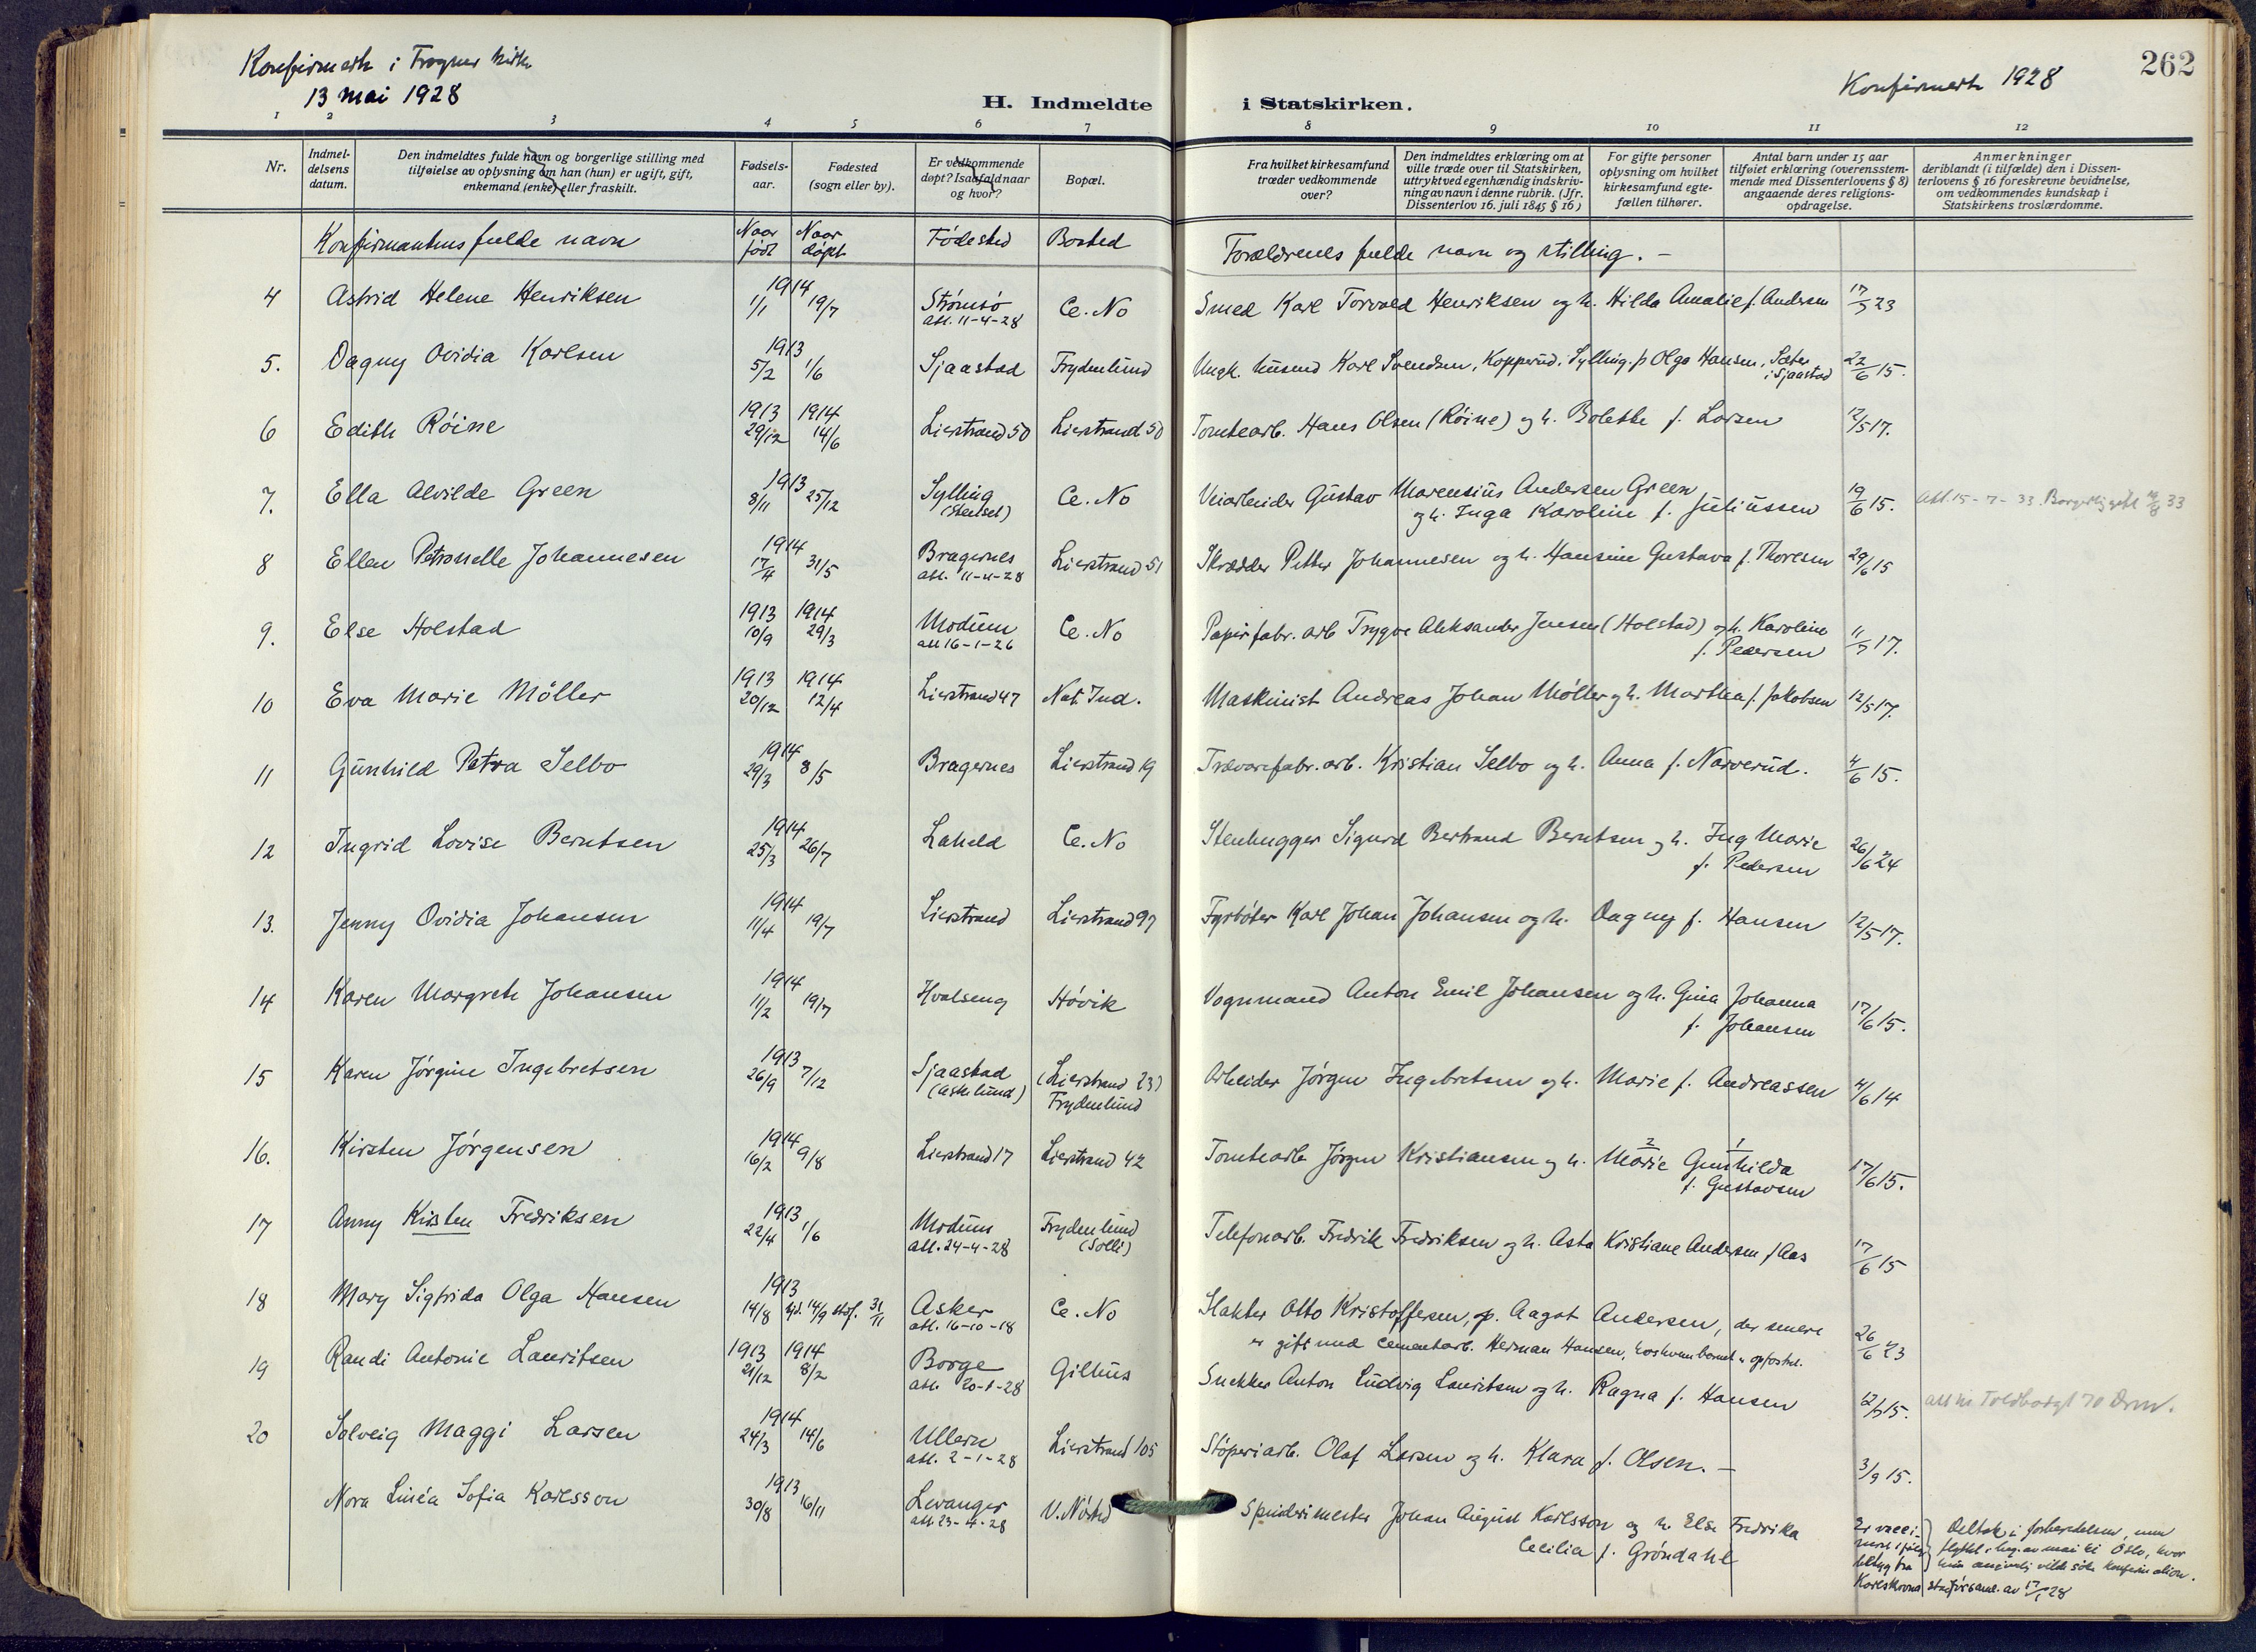 Konfirmerte i Frogner kirke
13 mai 1928
H. Indmeldte i Statskirken.
Konfirmerte 1928
262
1 2 3 4 5 6 7 8 9 10 11 12
Nr.
Indmel-
delsens
datum.
Den indmeldtes fulde navn og borgerlige stilling med
tilføielse av oplysning om han (hun) er ugift, gift,
enkemand (enke) eller fraskilt.
Fødsels-
aar.
Fødested
(sogn eller by).
Er vedkommende
døpt? Isaafald naar
og hvor?
Bopæl.
Fra hvilket kirkesamfund
træder vedkommende
over?
Den indmeldtes erklæring om at
ville træde over til Statskirken,
uttrykt ved egenhændig indskriv-
ning av navn i denne rubrik. (Jfr.
Dissenterlov 16. juli 1845 § 16)
For gifte personer
oplysning om hvilket
kirkesamfund egte-
fællen tilhører.
Antal barn under 15 aar
tilføiet erklæring (overensstem-
mende med Dissenterlovens § 8)
angaaende deres religions-
opdragelse.
Anmerkninger
deriblandt (i tilfælde) den i Dissen-
terlovens § 16 foreskrevne bevidnelse,
om vedkommendes kundskap i
Statskirkens troslærdomme.
Konfirmantens fulde navn Naar født Naar døpt Fødested Bosted Forældrenes fulde navn og stilling. —
4 Astrid Helene Henriksen 1914 1/1 19/7 Strømsø Ce. No Smed Karl Torvald Henriksen og h. Hilda Amalie f. Andersen 17/3 23
att. 11-4-28
5. Dagny Ovidia Karlsen 1913 5/2 1/6 Sjaastad Frydenlund Ungk. Karl Svendsen, Kopperud i Sylling. p Olga Hansen, Sæter 22/6 15.
i Sjaastad
6 Edith Röine 1913 29/12 1914 14/6 Lierstrand 50 Lierstrand 50 Tomtearb. Hans Olsen (Röine) og h. Bolette f. Larsen 12/5 17.
7. Ella Alvilde Green 1913 8/11 25/12 Sylling Ce. No Veiarbeider Gustav Marensius Andersen Green 19/6 15. att. 15-7-33.
og h. Inga Karoline f. Juliussen
8 Ellen Petronelle Johannesen 1914 17/4 31/5 Bragernes Lierstrand 51 Skrædder Petter Johannesen og h. Hansine Gustava f. Thoresen 29/6 15
att. 11-4-28
9. Else Holstad 1913 10/9 1914 29/3 Modum Ce. No Papirfabr. arb Trygve Aleksander Jensen (Holstad) og h. Karoline 11/7 17.
att 16-1-26 f. Pedersen
10 Eva Marie Möller 1913 20/12 1914 12/4 Lierstrand 47 Nat. Ind. Maskinist Andreas Johan Möller og h. Martha f. Jakobsen 12/5 17.
11 Gunhild Petra Selbo 1914 29/3 8/5 Bragernes Lierstrand 19 Trævarefabr. arb. Kristian Selbo og h. Anna f. Narverud. 4/6 15.
12 Ingrid Lovise Berntsen 1914 25/3 26/7 Laheld Ce. No Stenhugger Sigurd Bertrand Berntsen og h. Ing Marie 26/6 24
f. Pedersen
13. Jenny Ovidia Johansen 1914 11/4 19/7 Lierstrand Lierstrand 97 Fyrböter Karl Johan Johansen og h. Dagny f. Hansen 12/5 17.
14 Karen Margrete Johansen 1914 11/2 19/7 Hvalseng Hövik Vognmand Anton Emil Johansen og h. Gina Johanna 17/6 15.
f. Johansen
15 Karen Jörgine Ingebretsen 1913 26/9 7/12 Sjaastad (Lierstrand 23) Arbeider Jörgen Ingebretsen og h. Marie f. Andreassen 4/6 14
(Askelund) Frydenlund
16. Kirsten Jörgensen 1914 16/2 9/8 Lierstrand 17 Lierstrand 42 Tomtearb Jörgen Kristiansen og h. Marie Gunhilda 17/6 15.
2 1
f. Gustavsen
17 Anny Kirsten Fredriksen 1913 22/4 1/6 Modum Frydenlund Telefonarb. Fredrik Fredriksen og h. Asta Kristiane Andersen f Aas 17/6 15
att. 24-4-28 (Solli)
18 Mary Sigfrida Olga Hansen 1913 14/8 hjd. 14/9 stdf. 31/11 Asker Ce. No Slakter Otto Kristoffersen, og p. Aagot Andersen, der senere 26/6 23
att. 16-10-18 er gift med cementarb. Herman Hansen, hos hvem barnet er opfostret.
19 Randi Antonie Lauritsen 1913 21/12 1914 8/2 Borge Gilhus Snekker Anton Ludvig Lauritsen og h. Ragna f. Hansen 12/7 15. Toldbodgt 70 Drm.
att. 20-1-28
20 Solveig Maggi Larsen 1914 24/3 14/6 Ullern Lierstrand 105 Stöperiarb. Olaf Larsen og h. Klara f. Olsen. — 3/9 15.
att. 2-1-28
Nora Linéa Sofia Karlsson 1913 30/8 16/11 Levanger V. Nösted Spinderimester Johan August Karlsson og h. Else Fredrika
att. 23-4-28 Cecilia f. Gröndahl
Deltok i forberedelsen, men
flyttet i beg. av mai til Oslo, hvor
hun vilde söke konfirmation.